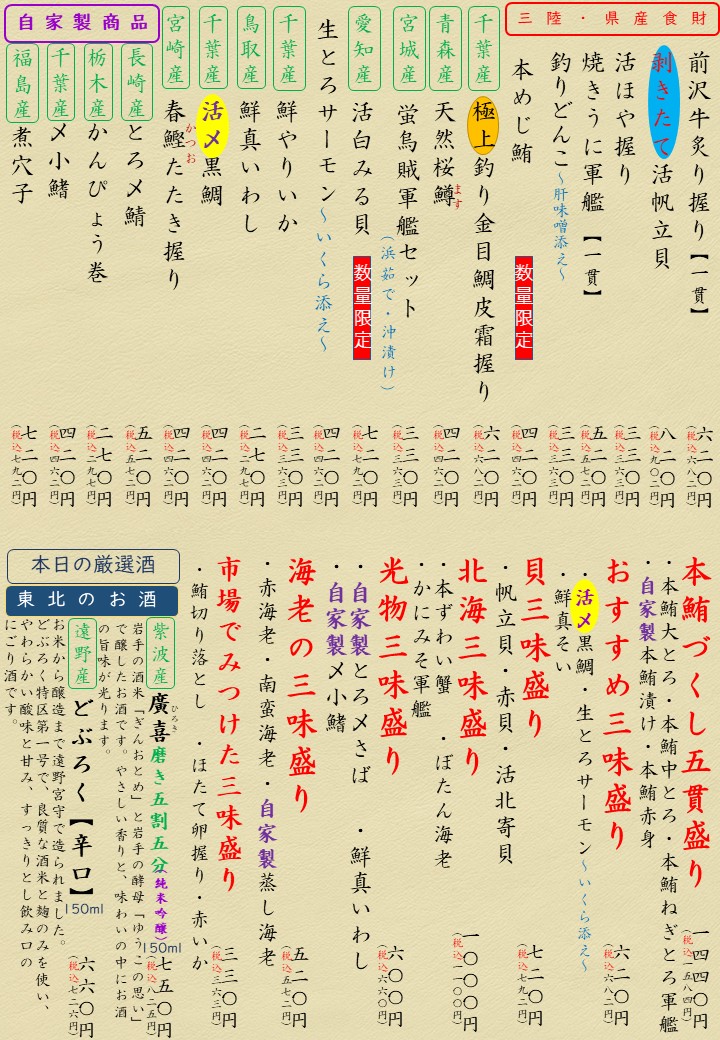 三陸・県産食財
前沢牛炙り握り【一貫】 六二〇円 (税込六八二円)
剥きたて活帆立貝 八二〇円 (税込九〇二円)
活ほや握り 三三〇円 (税込三六三円)
焼きうに軍艦【一貫】 五二〇円 (税込五七二円)
釣りどんこ～肝味噌添え～ 三三〇円 (税込三六三円)
本めじ鮪 数量限定 四二〇円 (税込四六二円)
千葉産 極上釣り金目鯛皮霜握り 六二〇円 (税込六八二円)
青森産 天然桜鱒 四二〇円 (税込四六二円)
ます
宮城産 蛍烏賊軍艦セット 三三〇円 (税込三六三円)
(浜茹で・沖漬け)
愛知産 活白みる貝 数量限定 七二〇円 (税込七九二円)
生とろサーモン～いくら添え～ 四二〇円 (税込四六二円)
千葉産 鮮やりいか 三三〇円 (税込三六三円)
鳥取産 鮮真いわし 二七〇円 (税込二九七円)
千葉産 活〆黒鯛 四二〇円 (税込四六二円)
宮崎産 春鰹たたき握り 四二〇円 (税込四六二円)
かつお
自家製商品
長崎産 とろ〆鯖 五二〇円 (税込五七二円)
栃木産 かんぴょう巻 二七〇円 (税込二九七円)
千葉産 〆小鰭 四二〇円 (税込四六二円)
福島産 煮穴子 七二〇円 (税込七九二円)
本鮪づくし五貫盛り 一四四〇円 (税込一五八四円)
・本鮪大とろ・本鮪中とろ・本鮪ねぎとろ軍艦
・自家製本鮪漬け・本鮪赤身
おすすめ三味盛り 六二〇円 (税込六八二円)
・活〆黒鯛・生とろサーモン～いくら添え～
・鮮真そい
貝三味盛り 七二〇円 (税込七九二円)
・帆立貝・赤貝・活北寄貝
北海三味盛り 一〇〇〇円 (税込一一〇〇円)
・本ずわい蟹・ぼたん海老
・かにみそ軍艦
光物三味盛り 六〇〇円 (税込六六〇円)
・自家製とろ〆さば・鮮真いわし
・自家製〆小鰭
海老の三味盛り 五二〇円 (税込五七二円)
・赤海老・南蛮海老・自家製蒸し海老
市場でみつけた三味盛り 三三〇円 (税込三六三円)
・鮪切り落とし・ほたて卵握り・赤いか
本日の厳選酒
東北のお酒
紫波産 廣喜磨き五割五分(純米吟醸) 150ml 七五〇円 (税込八二五円)
ひろき
岩手の酒米「ぎんおとめ」と岩手の酵母「ゆうこの思い」
で醸したお酒です。やさしい香りと、味わいの中にお酒
の旨味が光ります。
遠野産 どぶろく【辛口】 150ml 六六〇円 (税込七二六円)
お米から醸造まで遠野宮守で造られました。
どぶろく特区第一号で、良質な酒米と麹のみを使い、
やわらかい酸味と甘み、すっきりとし飲み口の
にごり酒です。